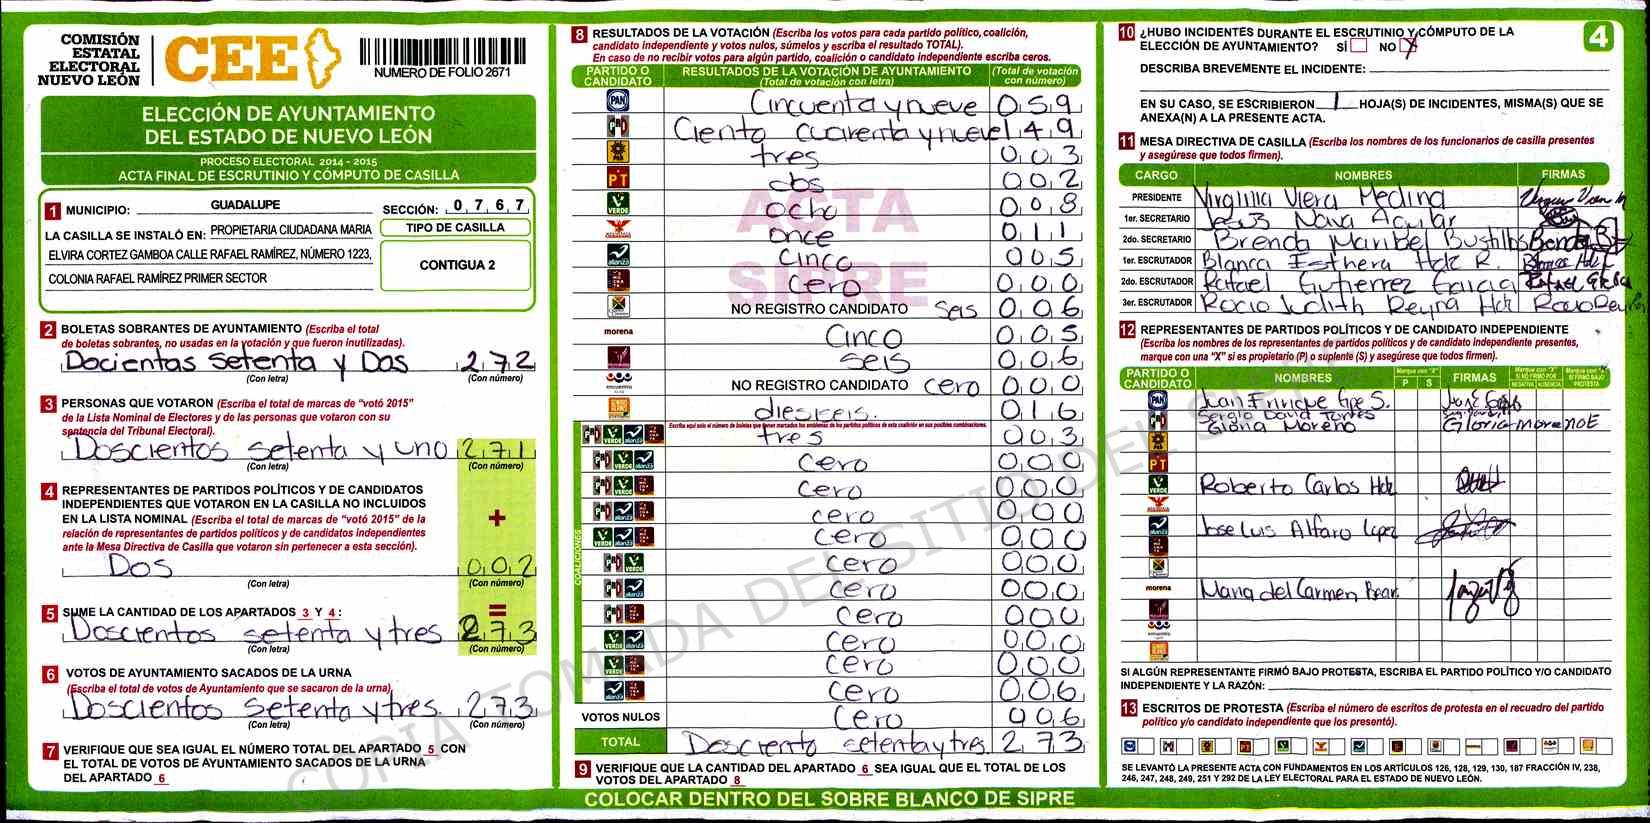 COMISIÓN
ESTATAL
ELECTORAL
NUEVO LEÓN
CEE
NUMERO DE FOLIO 2671
ELECCIÓN DE AYUNTAMIENTO
DEL ESTADO DE NUEVO LEÓN
PROCESO ELECTORAL 2014 - 2015
ACTA FINAL DE ESCRUTINIO Y CÓMPUTO DE CASILLA
1 MUNICIPIO: GUADALUPE SECCIÓN: 0 7 6 7
LA CASILLA SE INSTALÓ EN: PROPIETARIA CIUDADANA MARIA
ELVIRA CORTEZ GAMBOA CALLE RAFAEL RAMÍREZ, NÚMERO 1223,
COLONIA RAFAEL RAMÍREZ PRIMER SECTOR
TIPO DE CASILLA
CONTIGUA 2
2 BOLETAS SOBRANTES DE AYUNTAMIENTO (Escriba el total
de boletas sobrantes, no usadas en la votación y que fueron inutilizadas).
Docientas setenta y Dos 272
(Con letra) (Con número)
3 PERSONAS QUE VOTARON (Escriba el total de marcas de "votó 2015"
de la Lista Nominal de Electores y de las personas que votaron con su
sentencia del Tribunal Electoral).
Doscientos setenta y uno 271
(Con letra) (Con número)
4 REPRESENTANTES DE PARTIDOS POLÍTICOS Y DE CANDIDATOS
INDEPENDIENTES QUE VOTARON EN LA CASILLA NO INCLUIDOS
EN LA LISTA NOMINAL (Escriba el total de marcas de "votó 2015" de la
relación de representantes de partidos políticos y de candidatos independientes
ante la Mesa Directiva de Casilla que votaron sin pertenecer a esta sección).
+
Dos 002
(Con letra) (Con número)
=
5 SUME LA CANTIDAD DE LOS APARTADOS 3 Y 4:
Doscientos setenta y tres 273
(Con letra) (Con número)
6 VOTOS DE AYUNTAMIENTO SACADOS DE LA URNA
(Escriba el total de votos de Ayuntamiento que se sacaron de la urna).
Doscientos setenta y tres. 273
(Con letra) (Con número)
7 VERIFIQUE QUE SEA IGUAL EL NÚMERO TOTAL DEL APARTADO 5 CON
EL TOTAL DE VOTOS DE AYUNTAMIENTO SACADOS DE LA URNA
DEL APARTADO 6
8 RESULTADOS DE LA VOTACIÓN (Escriba los votos para cada partido político, coalición,
candidato independiente y votos nulos, súmelos y escriba el resultado TOTAL).
En caso de no recibir votos para algún partido, coalición o candidato independiente escriba ceros.
PARTIDO O CANDIDATO RESULTADOS DE LA VOTACIÓN DE AYUNTAMIENTO (Total de votación con letra) (Total de votación con número)
PAN Cincuenta y nueve 059
PRD Ciento cuarenta y nueve 149
tres 003
PT dos 002
VERDE ocho 008
once 011
alianza cinco 005
cero 000
NO REGISTRO CANDIDATO seis 006
morena Cinco 005
seis 006
encuentro NO REGISTRO CANDIDATO cero 000
diesiseis. 016
Escriba aquí solo el número de boletas que tienen marcados los emblemas de los partidos políticos de esta coalición en sus posibles combinaciones.
COALICIONES
tres 003
cero 000
cero 000
cero 000
cero 000
cero 000
cero 000
cero 000
cero 000
cero 000
cero 006
VOTOS NULOS cero 006
TOTAL Desciento setenta y tres 273
9 VERIFIQUE QUE LA CANTIDAD DEL APARTADO 6 SEA IGUAL QUE EL TOTAL DE LOS
VOTOS DEL APARTADO 8
ACTA
SIPRE
COLOCAR DENTRO DEL SOBRE BLANCO DE SIPRE
4
10 ¿HUBO INCIDENTES DURANTE EL ESCRUTINIO Y CÓMPUTO DE LA
ELECCIÓN DE AYUNTAMIENTO? SÍ NO X
DESCRIBA BREVEMENTE EL INCIDENTE:
EN SU CASO, SE ESCRIBIERON 1 HOJA(S) DE INCIDENTES, MISMA(S) QUE SE
ANEXA(N) A LA PRESENTE ACTA.
11 MESA DIRECTIVA DE CASILLA (Escriba los nombres de los funcionarios de casilla presentes
y asegúrese que todos firmen).
CARGO NOMBRES FIRMAS
PRESIDENTE Virginia Viera Medina
1er. SECRETARIO Jesus Nava Aguilar
2do. SECRETARIO Brenda Maribel Bustillos Brenda B
1er. ESCRUTADOR Blanca Esthera Hdz R. Blanca Hdz
2do. ESCRUTADOR Rafael Gutierrez Garcia Rafael
3er. ESCRUTADOR Rocio Judith Reyna Hdz Rocio Reyna
12 REPRESENTANTES DE PARTIDOS POLÍTICOS Y DE CANDIDATO INDEPENDIENTE
(Escriba los nombres de los representantes de partidos políticos y de candidato independiente presentes,
marque con una "X" si es propietario (P) o suplente (S) y asegúrese que todos firmen).
PARTIDO O CANDIDATO NOMBRES Marque con "X" P S FIRMAS Marque con "X" SI NO FIRMÓ POR NEGATIVA AUSENCIA Marque con "X" SI FIRMÓ BAJO PROTESTA
PAN Juan Enrique Gpe S.
Sergio David Torres
Gloria Moreno Gloria Moreno E
PT
VERDE Roberto Carlos Hdz
Jose Luis Alfaro Lopez
morena Maria del Carmen Bear.
encuentro
SI ALGÚN REPRESENTANTE FIRMÓ BAJO PROTESTA, ESCRIBA EL PARTIDO POLÍTICO Y/O CANDIDATO
INDEPENDIENTE Y LA RAZÓN:
13 ESCRITOS DE PROTESTA (Escriba el número de escritos de protesta en el recuadro del partido
político y/o candidato independiente que los presentó).
SE LEVANTÓ LA PRESENTE ACTA CON FUNDAMENTOS EN LOS ARTÍCULOS 126, 128, 129, 130, 187 FRACCIÓN IV, 238,
246, 247, 248, 249, 251 Y 292 DE LA LEY ELECTORAL PARA EL ESTADO DE NUEVO LEÓN.
COPIA TOMADA DEL SITIO DEL